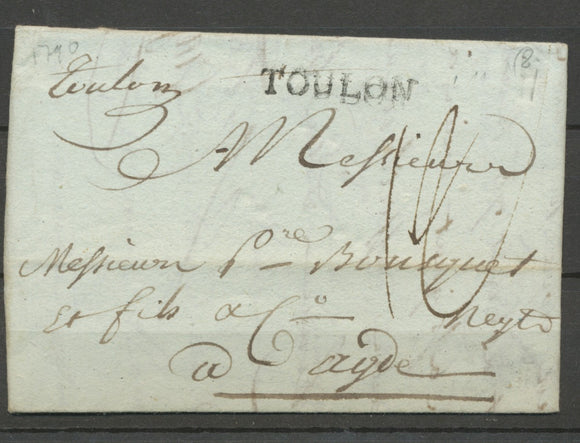 1790 (8
Toulon TOULON
Messieurs
Messieurs P.re Bousquet
et fils & C.o Neyts
a agde